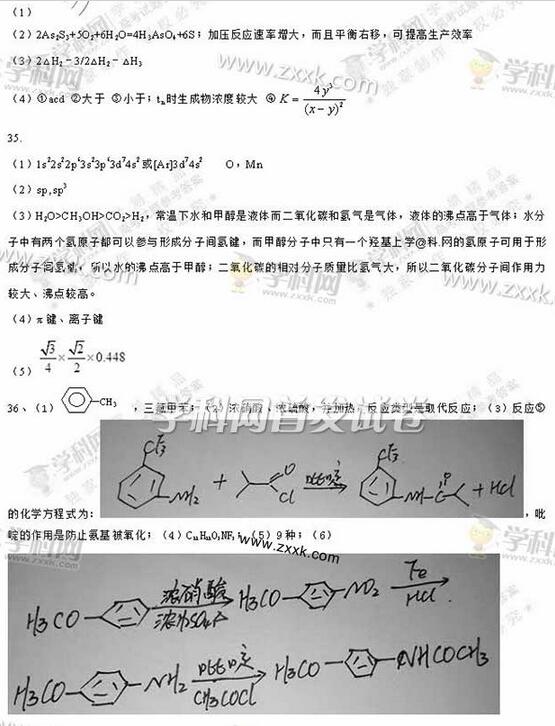 (1)
(2) 2As₂S₃+5O₂+6H₂O=4H₃AsO₄+6S；加压反应速率增大，而且平衡右移，可提高生产效率
(3) 2△H₂－3/2△H₂－△H₃
(4) ①acd ②大于 ③小于；tₙ时生成物浓度较大 ④ K = 4y³/(x－y)²
35.
(1) 1s²2s²2p⁶3s²3p⁶3d⁷4s²或[Ar]3d⁷4s² O，Mn
(2) sp,sp³
(3) H₂O>CH₃OH>CO₂>H₂，常温下水和甲醇是液体而二氧化碳和氢气是气体，液体的沸点高于气体；水分
子中有两个氢原子都可以参与形成分子间氢键，而甲醇分子中只有一个羟基上学@科.网的氢原子可用于形
成分子间氢键，所以水的沸点高于甲醇；二氧化碳的相对分子质量比氢气大，所以二氧化碳分子间作用力
较大、沸点较高。
(4) π键、离子键
(5) √3/4×√2/2×0.448
36、(1) CH₃ ，三氟甲苯；(2) 浓硝酸、浓硫酸，并加热 反应类型是取代反应；(3) 反应⑤
CF₃ NH₂ + O Cl 吡啶 → CF₃ NH-C O + HCl
的化学方程式为： ，吡
啶的作用是防止氨基被氧化；(4) C₁₁H₁₁O₃NF₃；(5) 9种；(6)
H₃CO 浓硝酸 浓H₂SO₄,△ H₃CO NO₂ Fe HCl
H₃CO NH₂ 吡啶 CH₃COCl H₃CO NHCOCH₃
学科网首发试卷
学科网
www.zxxk.com